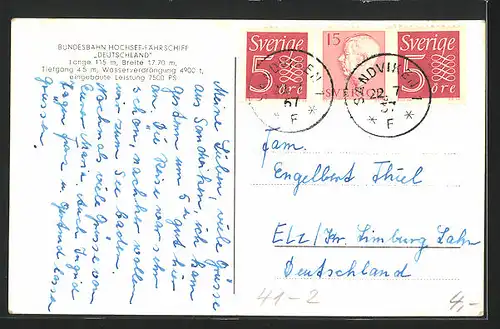 BUNDESBAHN HOCHSEE-FÄHRSCHIFF
„DEUTSCHLAND"
Länge 115 m, Breite 17.70 m,
Tiefgang 4.5 m, Wasserverdrängung 4900 t,
eingebaute Leistung 7500 PS
Meine Lieben, viele Grüsse
aus Sandviken, ich kam
gestern um 5 gut hier
an. Die Reise war sehr
schön, nachher wollen
wir zum See baden.
Nochmals viele Grüsse von
eurer Maria. Auch Ingrid
Sverige
5
öre
15
SVERIGE
Sverige
5
öre
SANDVIKEN 1
57
F
SANDVIKEN 1
22 7
57
F
Fam.
Engelbert Thiel
Elz/Kr. Limburg Lahn
Deutschland
41-2
4,-